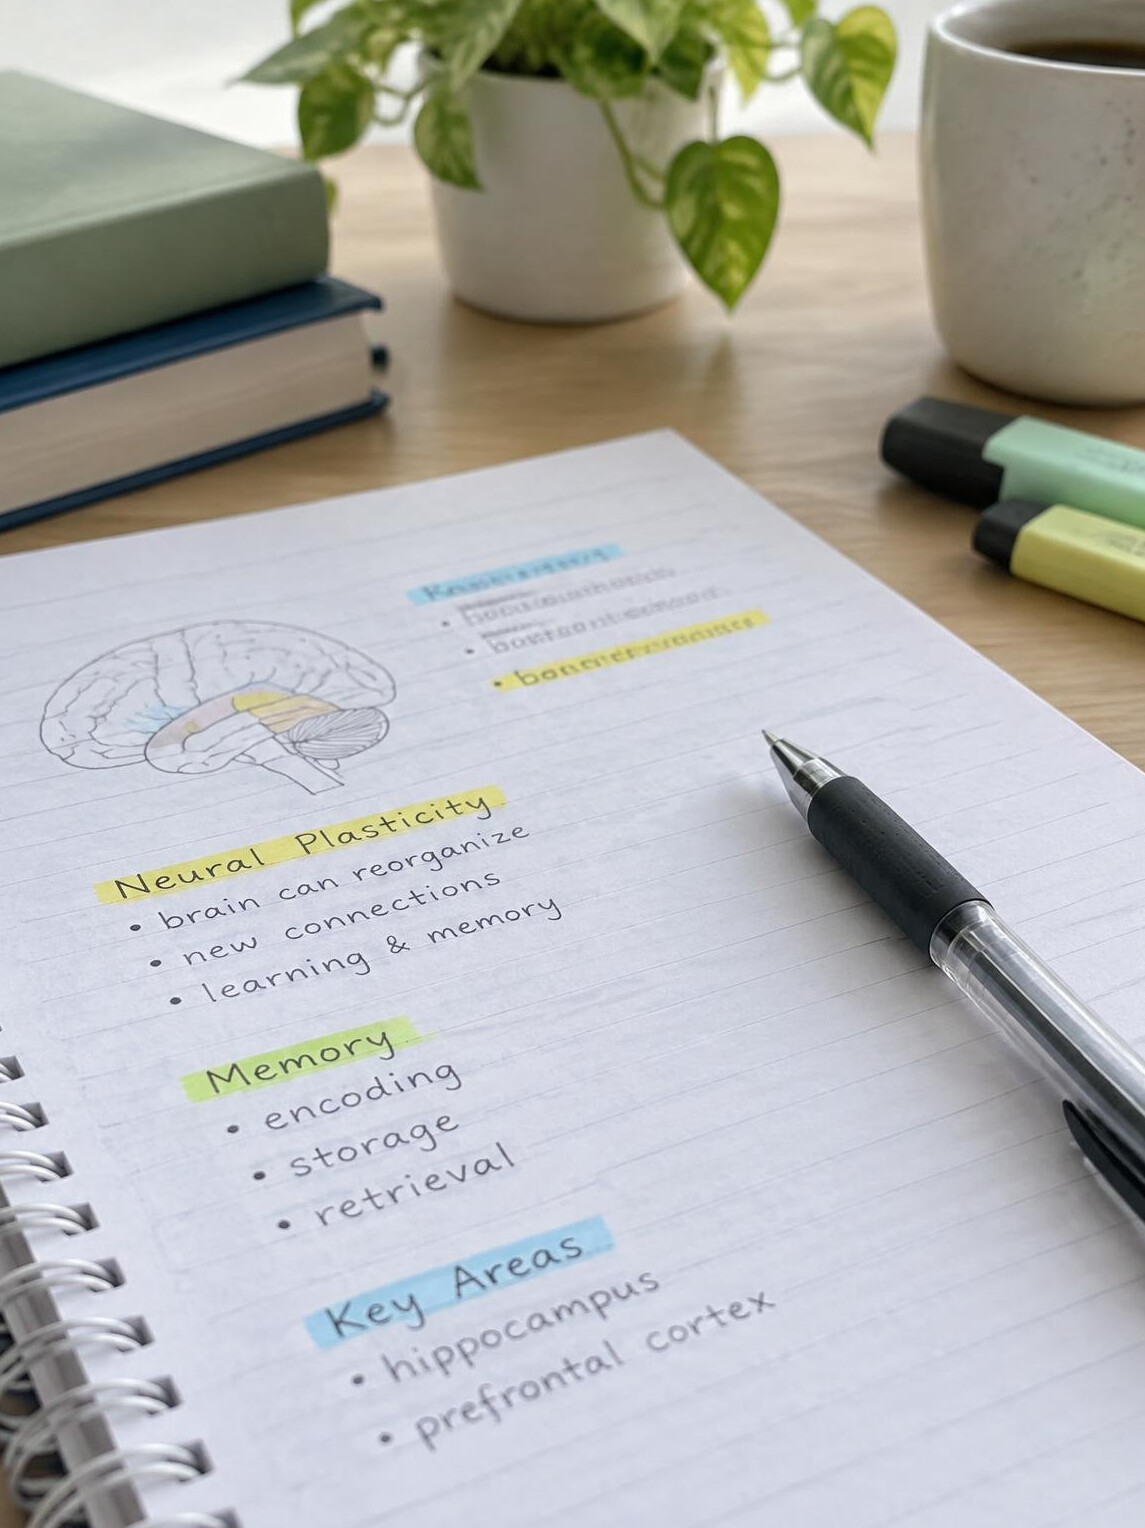 Neural Plasticity
• brain can reorganize
• new connections
• learning & memory
Memory
• encoding
• storage
• retrieval
Key Areas
• hippocampus
• prefrontal cortex